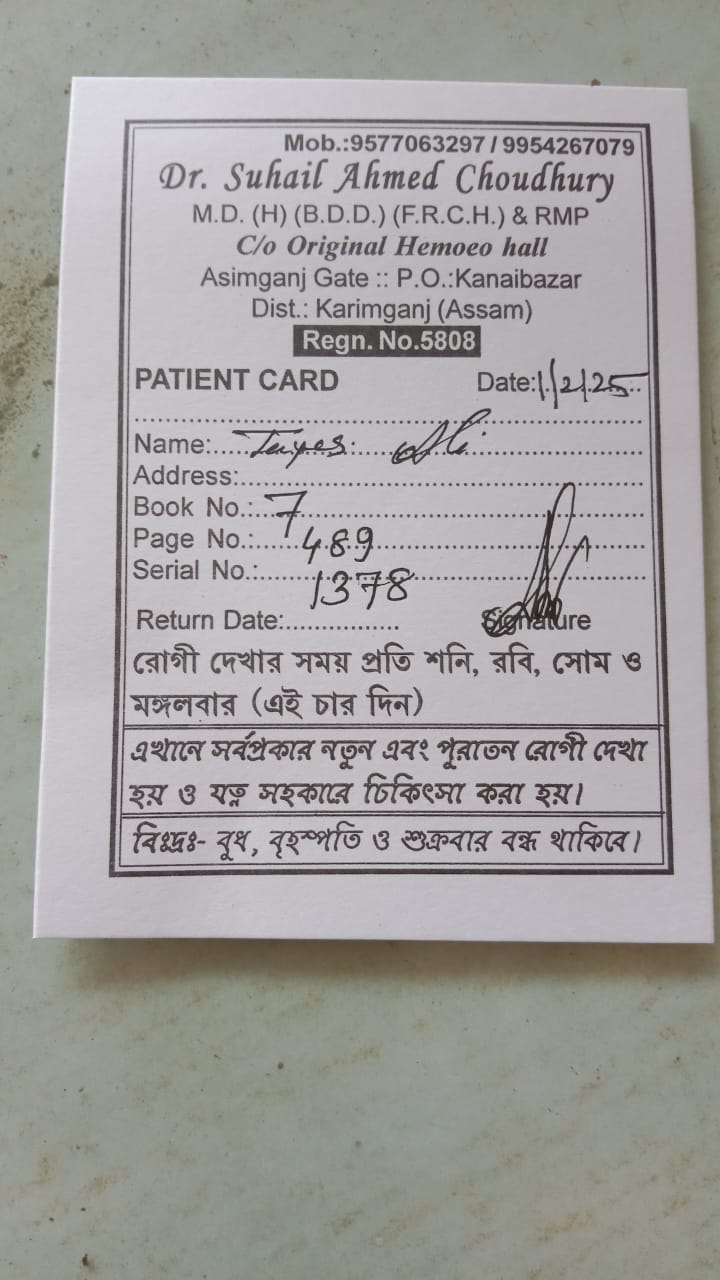 Mob.:9577063297 / 9954267079
Dr. Suhail Ahmed Choudhury
M.D. (H) (B.D.D.) (F.R.C.H.) & RMP
C/o Original Hemoeo hall
Asimganj Gate :: P.O.:Kanaibazar
Dist.: Karimganj (Assam)
Regn. No.5808
PATIENT CARD Date:1/2/25
Name: Ali
Address:
Book No.: 7
Page No.: 489
Serial No.: 1378
Return Date: Signature
রোগী দেখার সময় প্রতি শনি, রবি, সোম ও
মঙ্গলবার (এই চার দিন)
এখানে সর্বপ্রকার নতূন এবং পূরাতন রোগী দেখা
হয় ও যত্ন সহকারে চিকিৎসা করা হয়।
বিঃদ্রঃ- বুধ, বৃহস্পতি ও শুক্রবার বন্ধ থাকিবে।